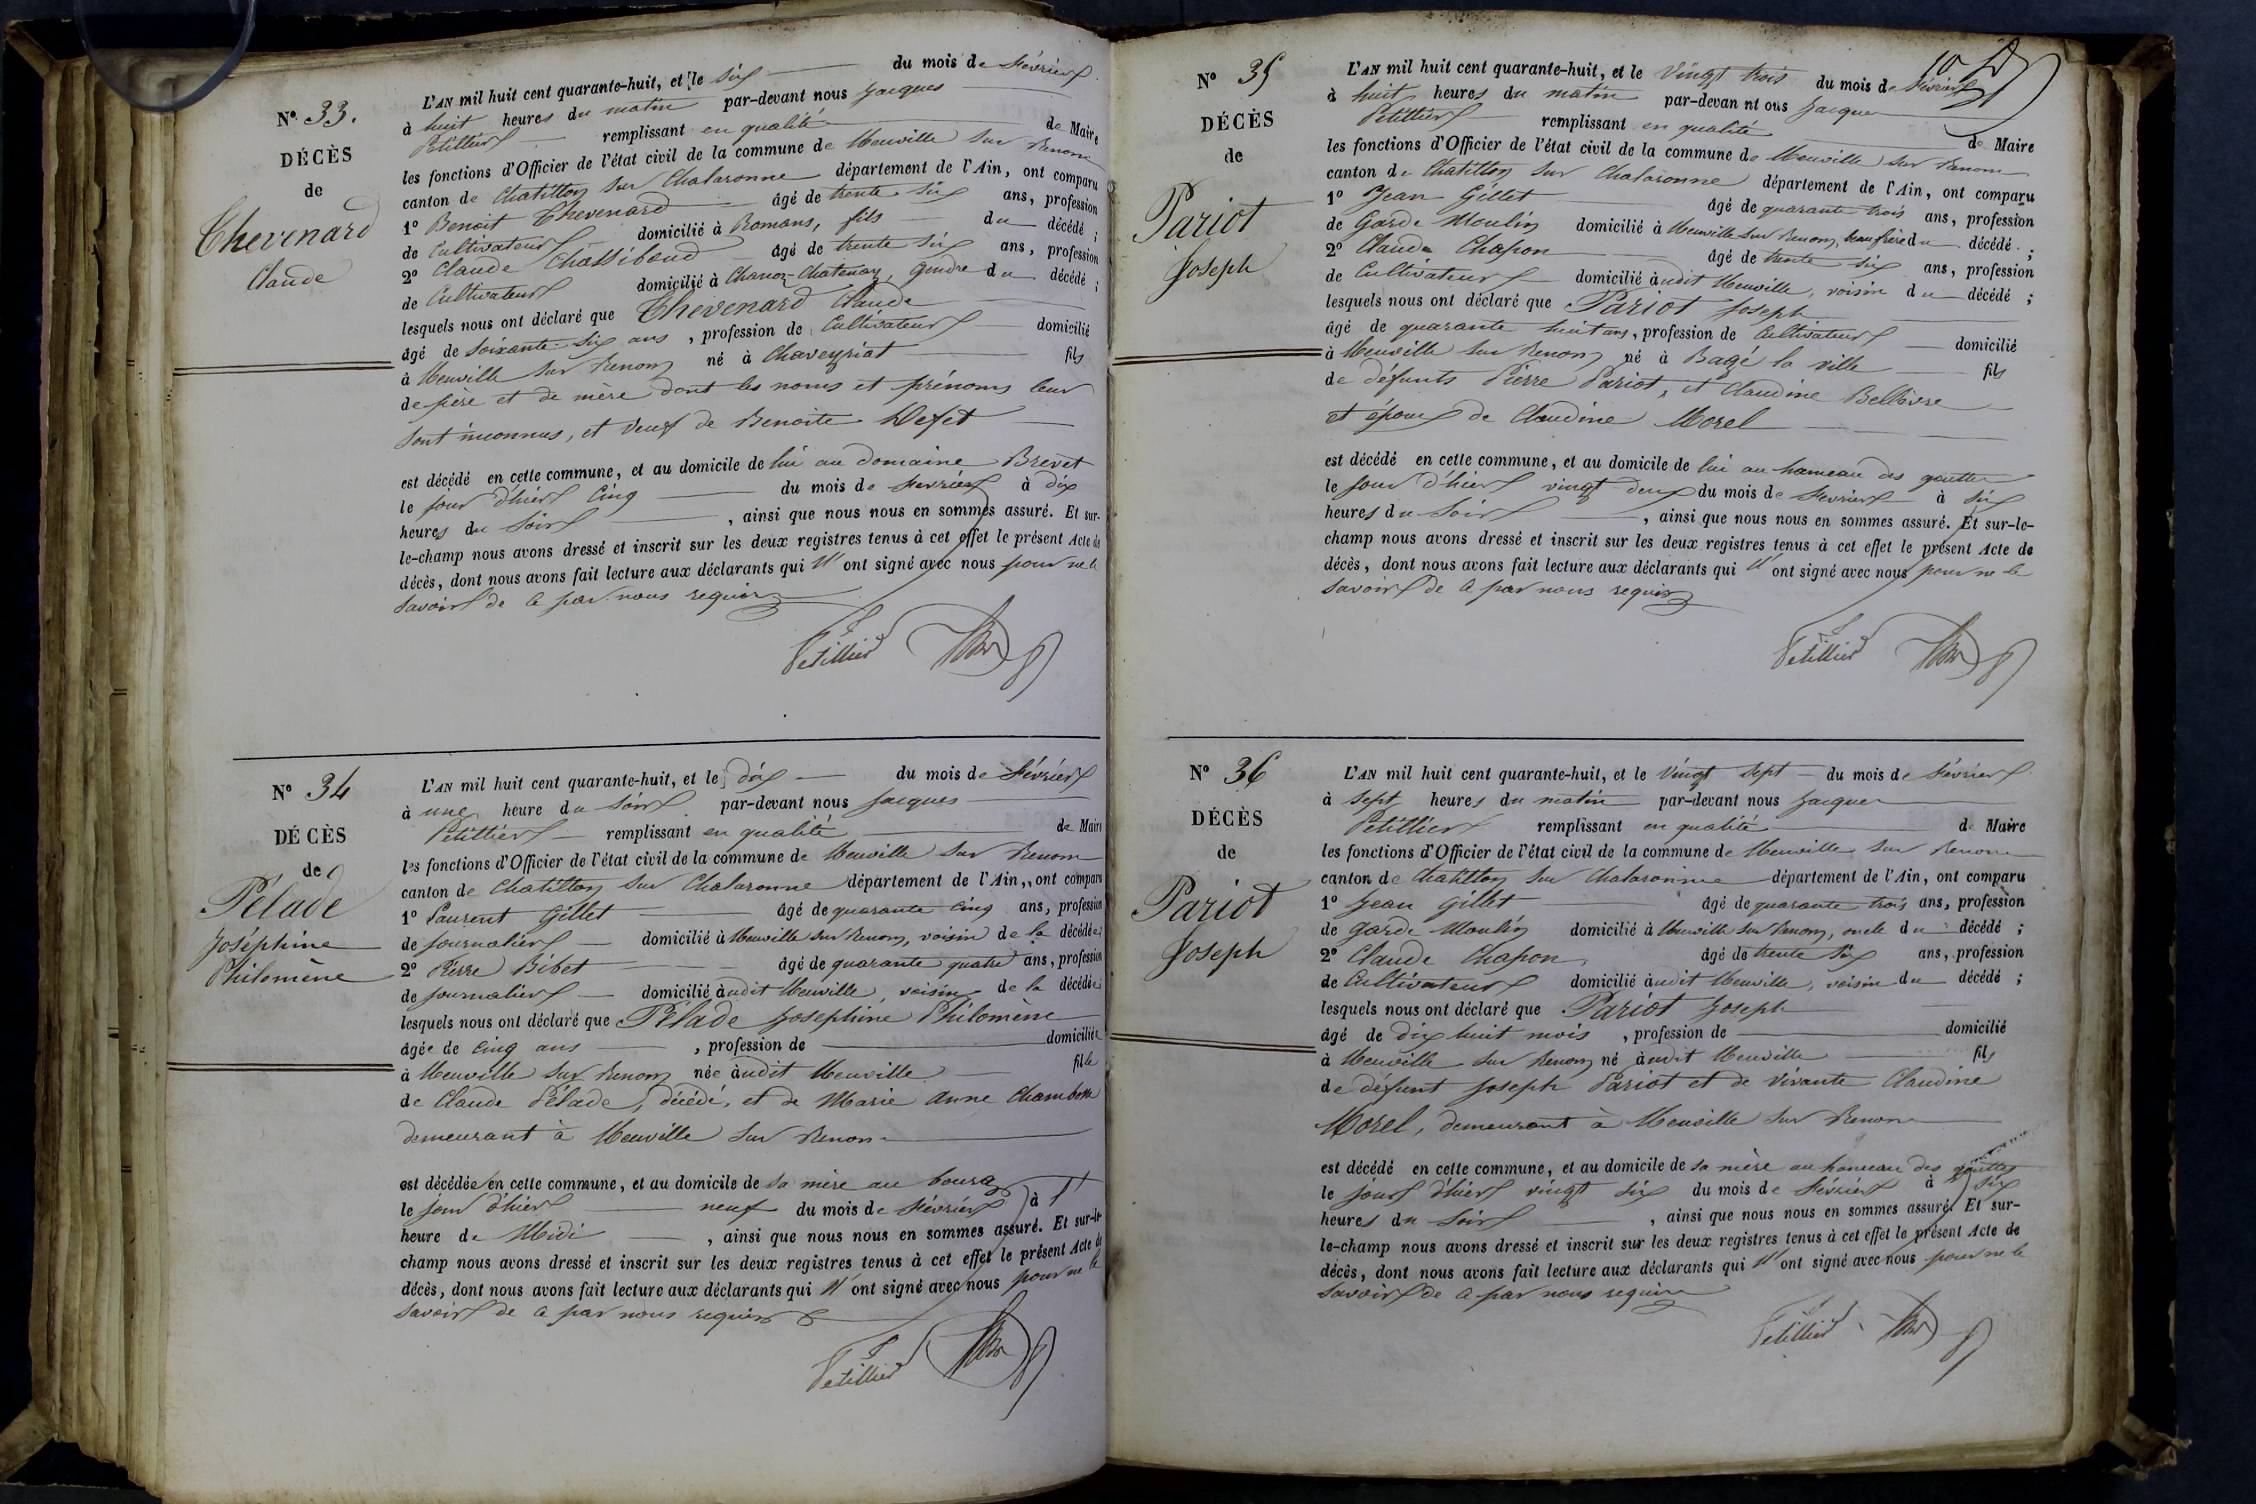 N° 33.
DÉCÈS
de
Thevenard
Claude
L'AN mil huit cent quarante-huit, et le six du mois de février
à huit heures du matin par-devant nous Jacques
Petillier remplissant en qualité de Maire
les fonctions d'Officier de l'état civil de la commune de Neuville sur Renom
canton de Chatillon sur Chalaronne département de l'Ain, ont comparu
1° Benoit Thevenard âgé de trente six ans, profession
de Cultivateur domicilié à Romans, fils du décédé ;
2° Claude Chassiboud âgé de trente six ans, profession
de Cultivateur domicilié à Chanoz-Chatenay, gendre du décédé ;
lesquels nous ont déclaré que Thevenard Claude
âgé de soixante six ans , profession de Cultivateur domicilié
à Neuville sur Renom né à Chaveyriat fils
de père et de mère dont les noms et prénoms leur
sont inconnus, et veuf de Benoite Defet
est décédé en cette commune, et au domicile de lui au domaine Brevet
le jour d'hier cinq du mois de février à dix
heures du soir , ainsi que nous nous en sommes assuré. Et sur-
le-champ nous avons dressé et inscrit sur les deux registres tenus à cet effet le présent Acte de
décès, dont nous avons fait lecture aux déclarants qui n' ont signé avec nous pour ne le
savoir de ce par nous requis
Petillier
N° 34
DÉCÈS
de
Pélade
Joséphine
Philomène
L'AN mil huit cent quarante-huit, et le dix du mois de février
à une heure du soir par-devant nous Jacques
Petillier remplissant en qualité de Maire
les fonctions d'Officier de l'état civil de la commune de Neuville sur Renom
canton de Chatillon sur Chalaronne département de l'Ain, ont comparu
1° Laurent Gillet âgé de quarante cinq ans, profession
de journalier domicilié à Neuville sur Renom, voisin de la décédée;
2° Pierre Bibet âgé de quarante quatre ans, profession
de journalier domicilié audit Neuville, voisin de la décédée;
lesquels nous ont déclaré que Pélade Josephine Philomène
âgée de cinq ans , profession de domiciliée
à Neuville sur Renom née audit Neuville fille
de Claude Pélade, décédé, et de Marie Anne Chambon
demeurant à Neuville sur Renom
est décédée en cette commune, et au domicile de sa mère au bourg
le jour d'hier neuf du mois de février à l'
heure de Midi , ainsi que nous nous en sommes assuré. Et sur-le-
champ nous avons dressé et inscrit sur les deux registres tenus à cet effet le présent Acte de
décès, dont nous avons fait lecture aux déclarants qui n' ont signé avec nous pour ne le
savoir de ce par nous requis
Petillier
10
N° 35
DÉCÈS
de
Pariot
Joseph
L'AN mil huit cent quarante-huit, et le vingt trois du mois de février
à huit heures du matin par-devan nt ous Jacques
Petillier remplissant en qualité de Maire
les fonctions d'Officier de l'état civil de la commune de Neuville sur Renom
canton de Chatillon sur Chalaronne département de l'Ain, ont comparu
1° Jean Gillet âgé de quarante trois ans, profession
de Garde Moulin domicilié à Neuville sur Renom, beau frère du décédé ;
2° Claude Chapon âgé de trente six ans, profession
de Cultivateur domicilié audit Neuville, voisin du décédé ;
lesquels nous ont déclaré que Pariot Joseph
âgé de quarante huit ans, profession de Cultivateur domicilié
à Neuville sur Renom né à Bagé la ville fils
de défunts Pierre Pariot, et Claudine Bellèvre
et époux de Claudine Morel
est décédé en cette commune, et au domicile de lui au hameau des gouttes
le jour d'hier vingt deux du mois de février à six
heures du soir , ainsi que nous nous en sommes assuré. Et sur-le-
champ nous avons dressé et inscrit sur les deux registres tenus à cet effet le présent Acte de
décès, dont nous avons fait lecture aux déclarants qui n' ont signé avec nous pour ne le
savoir de ce par nous requis
Petillier
N° 36
DÉCÈS
de
Pariot
Joseph
L'AN mil huit cent quarante-huit, et le vingt sept du mois de février
à sept heures du matin par-devant nous Jacques
Petillier remplissant en qualité de Maire
les fonctions d'Officier de l'état civil de la commune de Neuville sur Renom
canton de Chatillon sur Chalaronne département de l'Ain, ont comparu
1° Jean Gillet âgé de quarante trois ans, profession
de garde Moulin domicilié à Neuville sur Renom, oncle du décédé ;
2° Claude Chapon âgé de trente six ans, profession
de Cultivateur domicilié audit Neuville, voisin du décédé ;
lesquels nous ont déclaré que Pariot Joseph
âgé de dix huit mois , profession de domicilié
à Neuville sur Renom né audit Neuville fils
de défunt Joseph Pariot et de vivante Claudine
Morel, demeurant à Neuville sur Renom
est décédé en cette commune, et au domicile de sa mère au hameau des gouttes
le jour d'hier vingt six du mois de février à six
heures du soir , ainsi que nous nous en sommes assuré. Et sur-
le-champ nous avons dressé et inscrit sur les deux registres tenus à cet effet le présent Acte de
décès, dont nous avons fait lecture aux déclarants qui n' ont signé avec nous pour ne le
savoir de ce par nous requis
Petillier